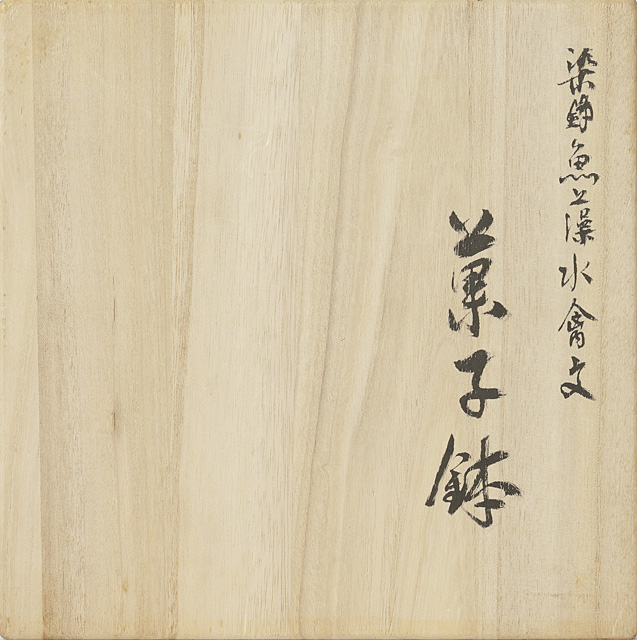 染錦魚藻水禽文
菓子鉢